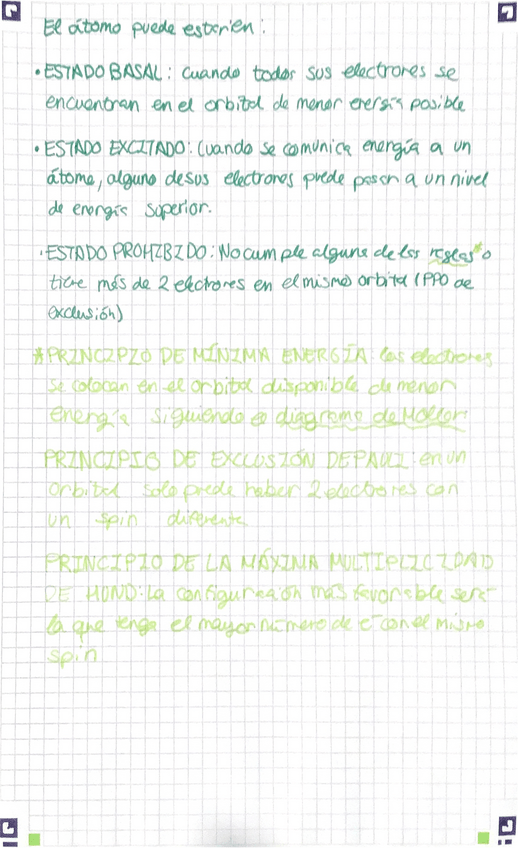 El átomo puede estar en:
• ESTADO BASAL: Cuando todos sus electrones se
encuentran en el orbital de menor energía posible
• ESTADO EXCITADO: Cuando se comunica energía a un
átomo, alguno de sus electrones puede pasar a un nivel
de energía superior.
• ESTADO PROHIBIDO: No cumple alguna de las reglas* o
tiene más de 2 electrones en el mismo orbital (PPO de
exclusión)
*PRINCIPIO DE MÍNIMA ENERGÍA: los electrones
se colocan en el orbital disponible de menor
energía siguiendo el diagrama de Moller
PRINCIPIO DE EXCLUSIÓN DE PAULI: en un
orbital solo puede haber 2 electrones con
un spin diferente
PRINCIPIO DE LA MÁXIMA MULTIPLICIDAD
DE HUND: La configuración más favorable será
la que tenga el mayor número de e⁻ con el mismo
spin